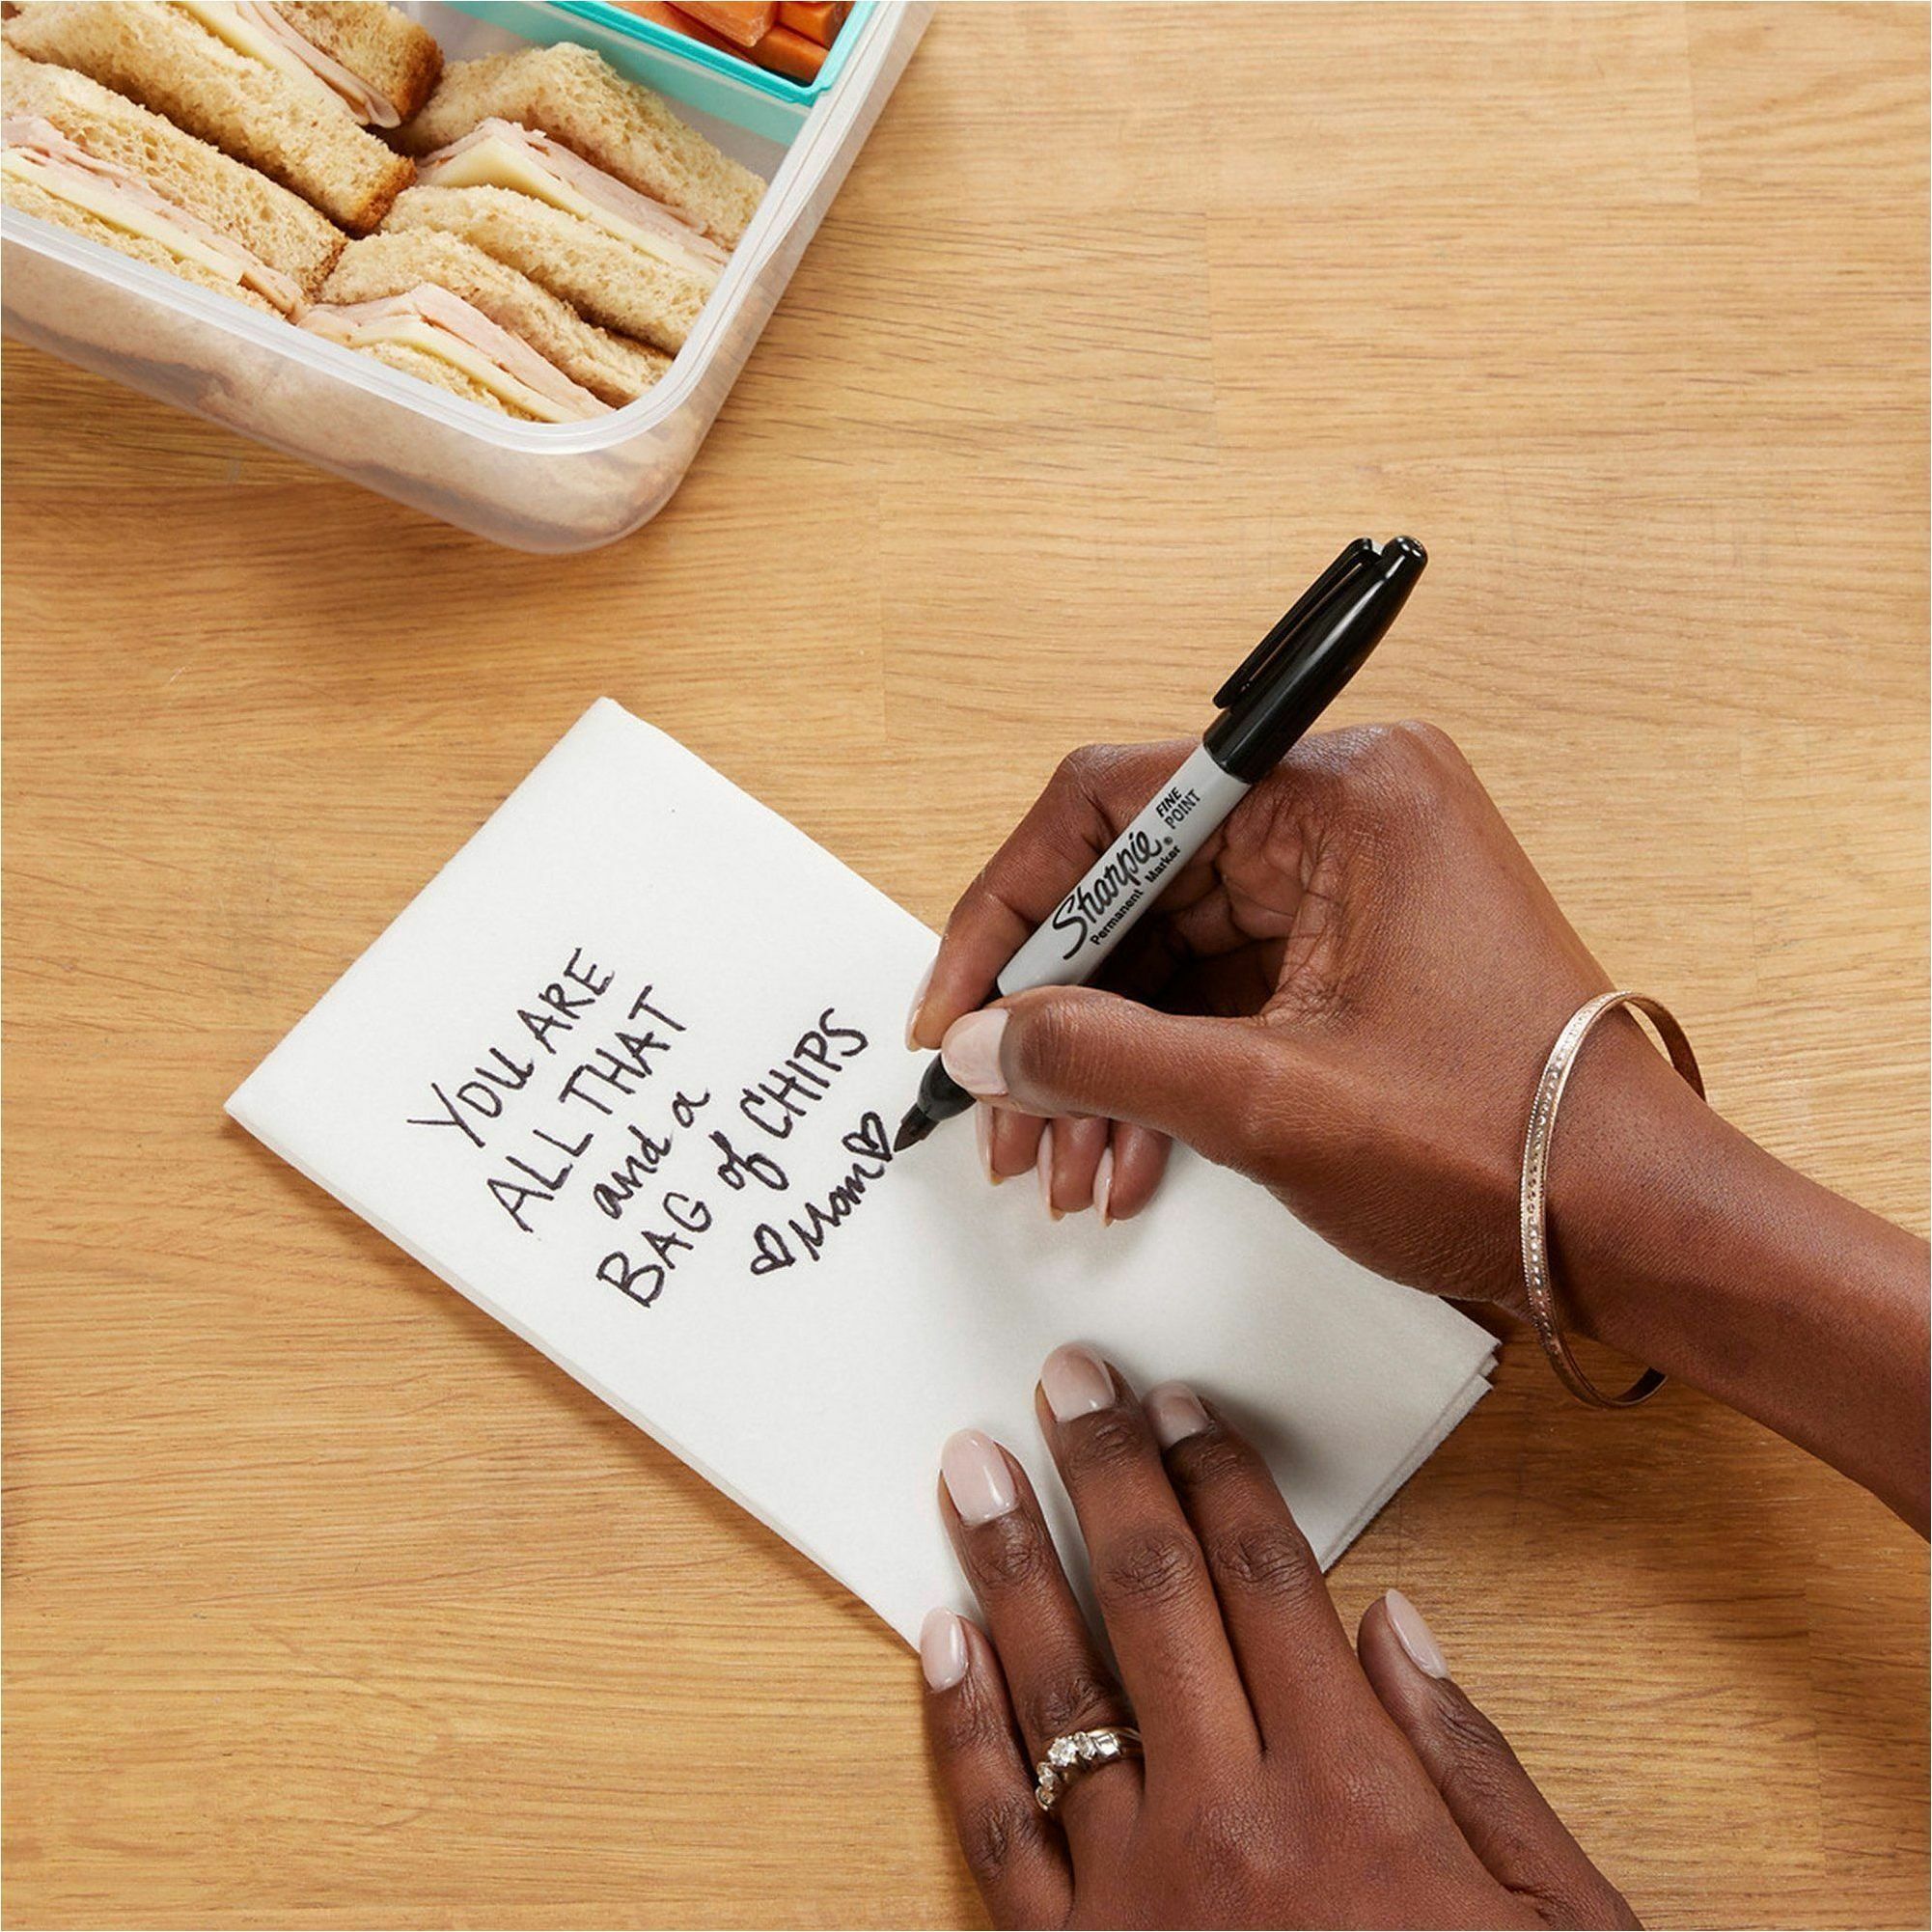 Sharpie®
FINE
POINT
Permanent Marker
YOU ARE
ALL THAT
and a
BAG of CHIPS
♡Mom♡